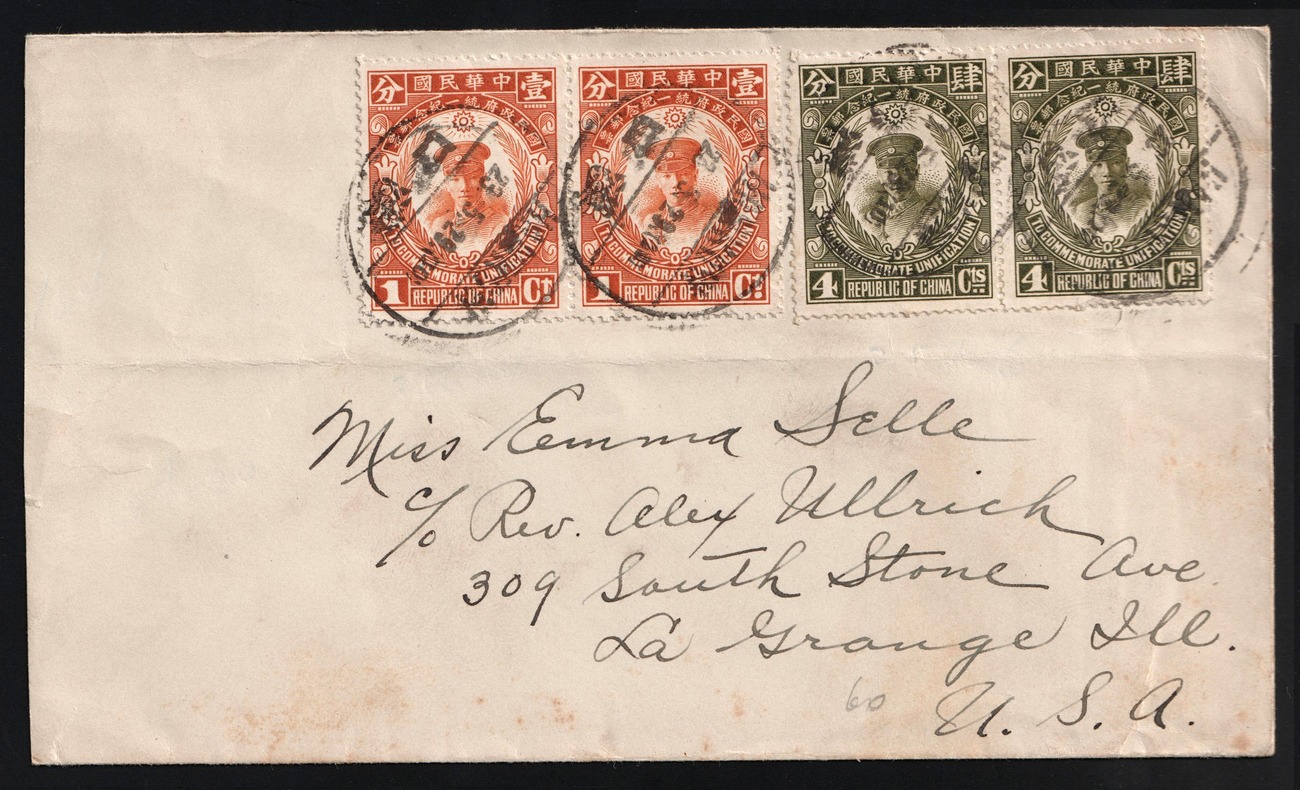 壹 中華民國 分
壹 中華民國 分
肆 中華民國 分
肆 中華民國 分
國民政府統一紀念郵票
國民政府統一紀念郵票
國民政府統一紀念郵票
國民政府統一紀念郵票
TO COMMEMORATE UNIFICATION
TO COMMEMORATE UNIFICATION
TO COMMEMORATE UNIFICATION
TO COMMEMORATE UNIFICATION
1 REPUBLIC OF CHINA Ct
1 REPUBLIC OF CHINA Ct
4 REPUBLIC OF CHINA Cts
4 REPUBLIC OF CHINA Cts
Miss Emma Selle
c/o Rev. Alex Ullrich
309 South Stone Ave.
La Grange Ill.
60
U. S. A.